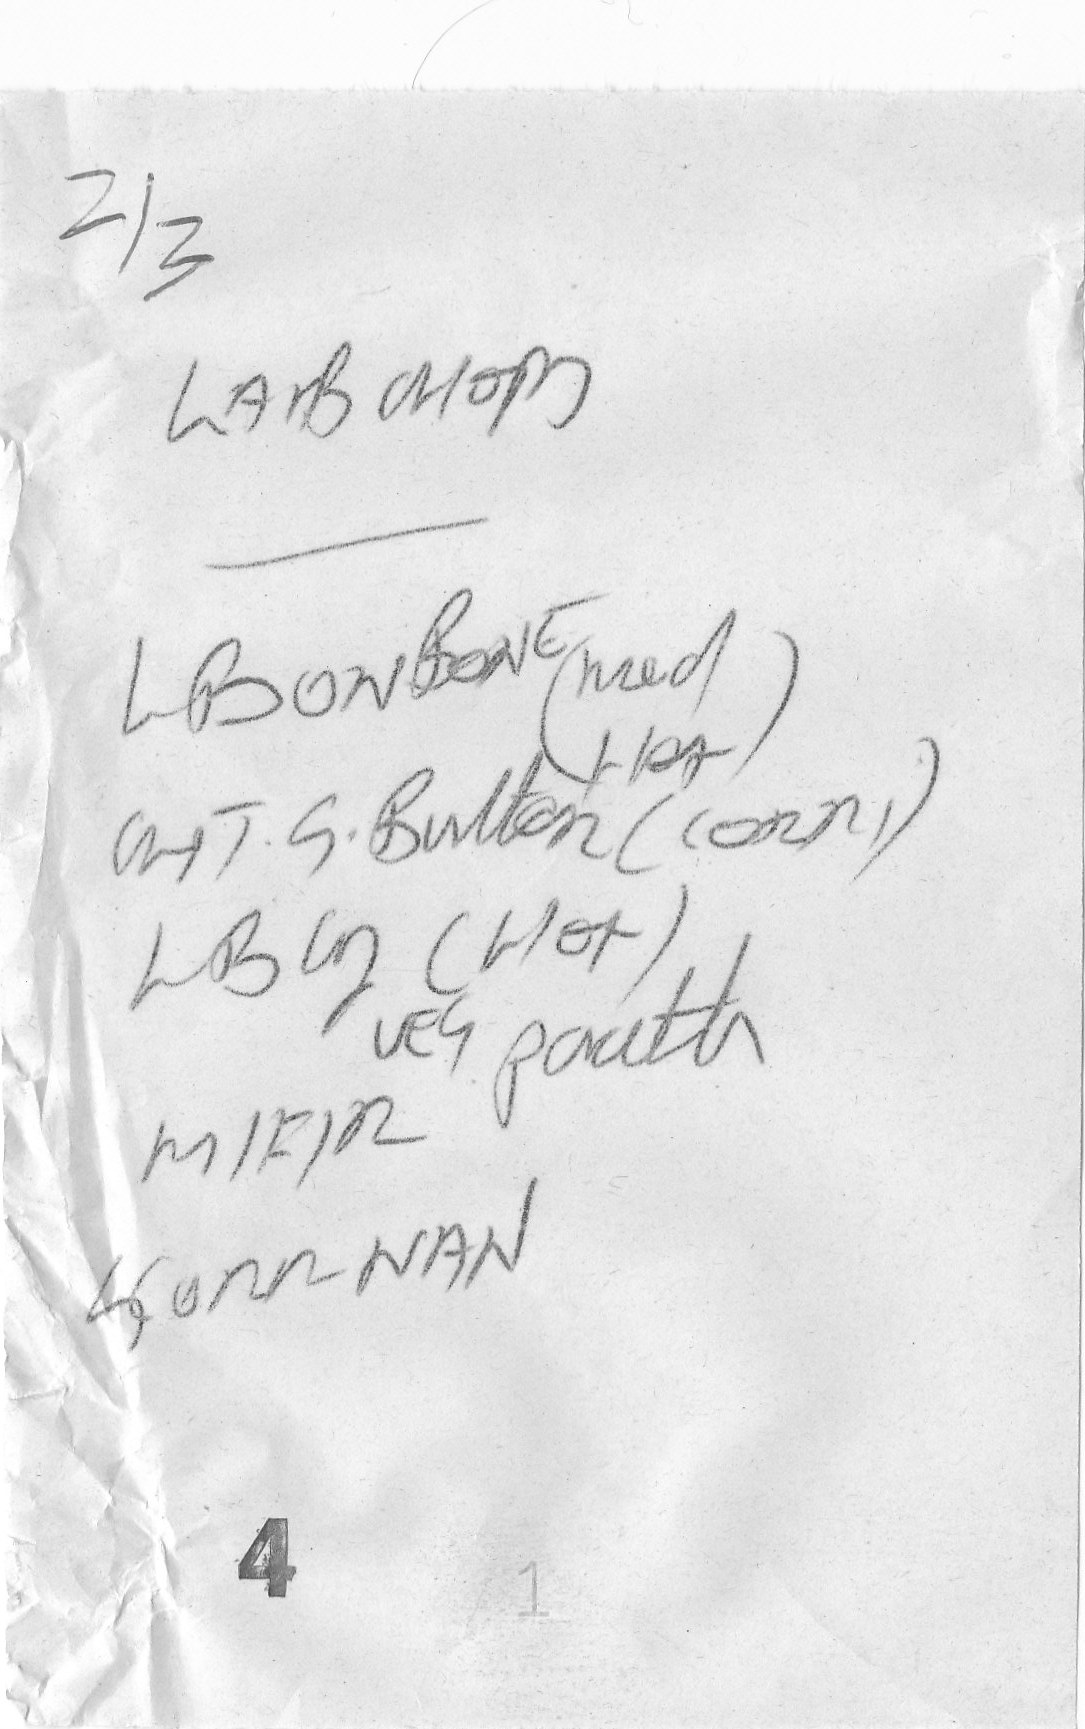 2/3
LAMB CHOPS
LB ON BONE (med
HOT)
CHT. G. Butter (CORR1)
LB Cy (HOT)
VEG parath
MIEIR
GORR NAN
4
1